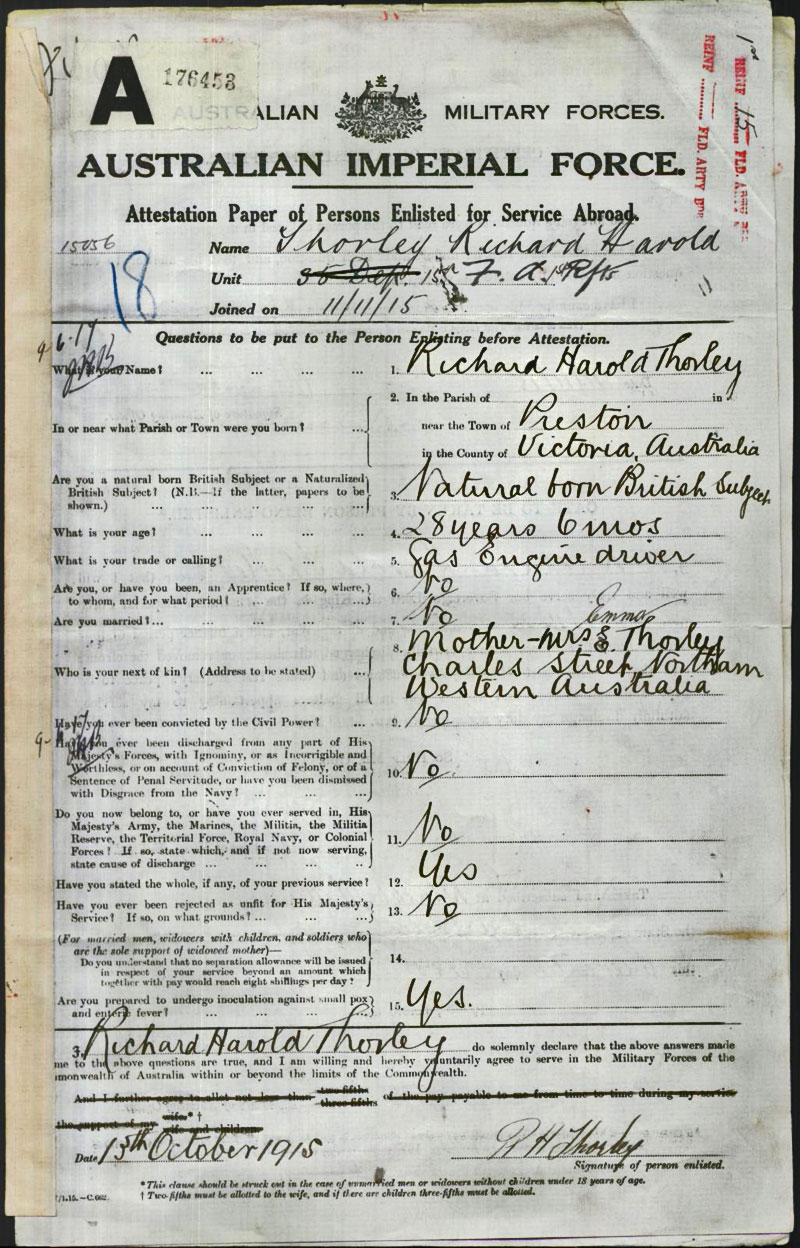 A 176453
AUSTRALIAN MILITARY FORCES.
1st REINF 15 FLD. ARTY BDE
REINF FLD. ARTY BDE
AUSTRALIAN IMPERIAL FORCE.
Attestation Paper of Persons Enlisted for Service Abroad.
15056
Name Thorley Richard Harold
18
Unit 36 Dep. 15 F. A.
Joined on 11/11/15
Questions to be put to the Person Enlisting before Attestation.
What is your Name? ... ... ... ... 1. Richard Harold Thorley
In or near what Parish or Town were you born? ... 2. In the Parish of in
near the Town of Preston
in the County of Victoria, Australia
Are you a natural born British Subject or a Naturalized
British Subject? (N.B.—If the latter, papers to be
shown.) ... ... ... ... 3. Natural born British Subject
What is your age? ... ... ... ... 4. 28 years 6 mos
What is your trade or calling? ... ... ... 5. Gas Engine driver
Are you, or have you been, an Apprentice? If so, where,
to whom, and for what period? ... ... ... 6. No
Are you married?... ... ... ... ... 7. No
Emma
Who is your next of kin? (Address to be stated) ... 8. Mother - Mrs E Thorley
Charles Street Northam
Western Australia
Have you ever been convicted by the Civil Power? ... 9. No
Have you ever been discharged from any part of His
Majesty's Forces, with Ignominy, or as Incorrigible and
Worthless, or on account of Conviction of Felony, or of a
Sentence of Penal Servitude, or have you been dismissed
with Disgrace from the Navy? ... ... ... 10. No
Do you now belong to, or have you ever served in, His
Majesty's Army, the Marines, the Militia, the Militia
Reserve, the Territorial Force, Royal Navy, or Colonial
Forces? If so, state which, and if not now serving,
state cause of discharge ... ... ... 11. No
Have you stated the whole, if any, of your previous service? 12. Yes
Have you ever been rejected as unfit for His Majesty's
Service? If so, on what grounds? ... ... ... 13. No
(For married men, widowers with children, and soldiers who
are the sole support of widowed mother)—
Do you understand that no separation allowance will be issued
in respect of your service beyond an amount which
together with pay would reach eight shillings per day? ... 14.
Are you prepared to undergo inoculation against small pox
and enteric fever? ... ... ... ... 15. Yes.
3. Richard Harold Thorley do solemnly declare that the above answers made
me to the above questions are true, and I am willing and hereby voluntarily agree to serve in the Military Forces of the
mmonwealth of Australia within or beyond the limits of the Commonwealth.
And I further agree to allot not less than two-fifths three-fifths of the pay payable to me from time to time during my service
the support of my wife* † wife and children
Date 13th October 1915
R H Thorley
Signature of person enlisted.
* This clause should be struck out in the case of unmarried men or widowers without children under 18 years of age.
† Two-fifths must be allotted to the wife, and if there are children three-fifths must be allotted.
/1.15.—C.662.